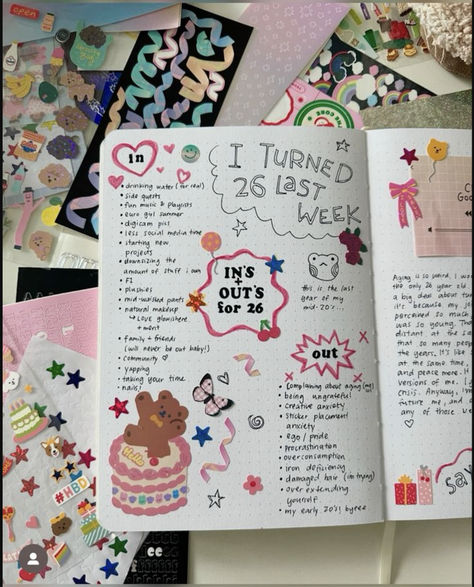 open
in
• drinking water (for real)
• side quests
• fun music & playlists
• euro girl summer
• digicam pics
• less social media time
• starting new
projects
• downsizing the
amount of stuff i own
• F1
• plushies
• mid-waisted pants
• natural makeup
↳ LOVE glowishere
+ merit
• family + friends
(will never be out baby!)
• community
• yapping
• taking your time
• nails!
I TURNED
26 LAST
WEEK
IN'S
+
OUT'S
for 26
this is the last
year of my
mid-20's...
out
• complaining about aging (me)
• being ungrateful
• creative anxiety
• sticker placement
anxiety
• ego / pride
• procrastination
• overconsumption
• iron deficiency
• damaged hair (im trying)
• over extending
yourself
• my early 20's! byeee
Hello
#HBD
Aging is so weird. I wa
the only 26 year old
a big deal about the
it's because my
perceived so much
was so young. The
distant at the sa
that so many peop
the years. It's like
at the same time
and peace more. I
versions of me. I
crisis. Anyway, I'm
future me, and
any of those
sa